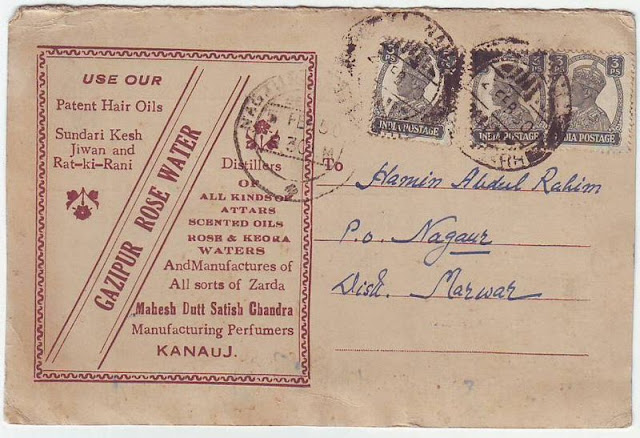 USE OUR
Patent Hair Oils
Sundari Kesh
Jiwan and
Rat-ki-Rani
GAZIPUR ROSE WATER
Distillers
OF
ALL KINDS OF
ATTARS
SCENTED OILS
ROSE & KEORA
WATERS
And Manufactures of
All sorts of Zarda
Mahesh Dutt Satish Chandra
Manufacturing Perfumers
KANAUJ.
3 PS
INDIA POSTAGE
3 PS
INDIA POSTAGE
3 PS
INDIA POSTAGE
NAGAUR
FE
To
Hamin Abdul Rahim
P.o. Nagaur
Dist. Marwar